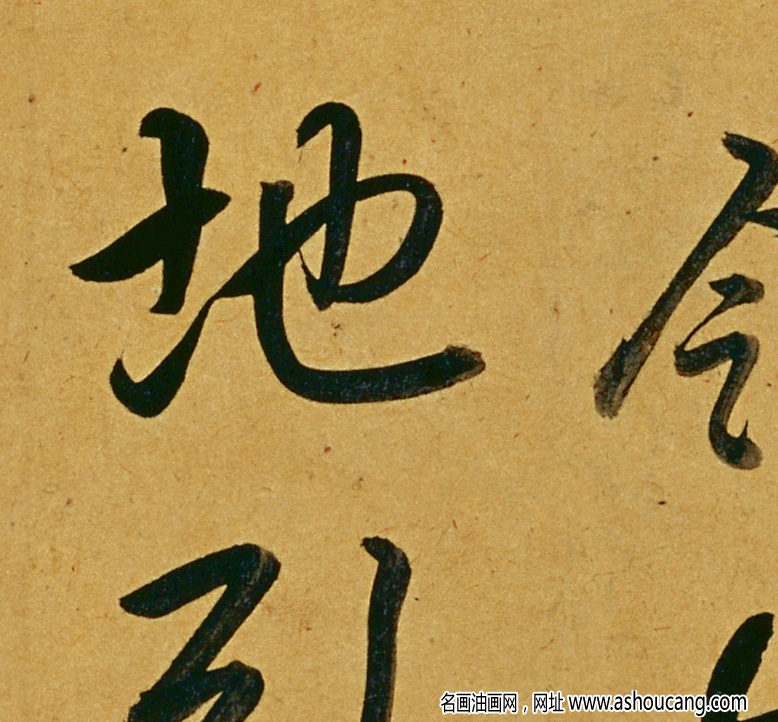 令
地引
名画油画网，网址 www.ashoucang.com